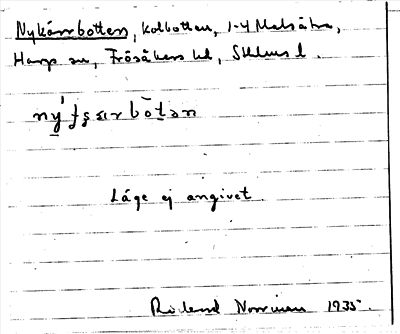 Nykärrbotten, Kolbotten, 1-4 Malsätra,
Harg sn, Frösåkers hd, Sthlms l.
ny´ʃsærbòtən
Läge ej angivet.
Roland Norrman 1935.